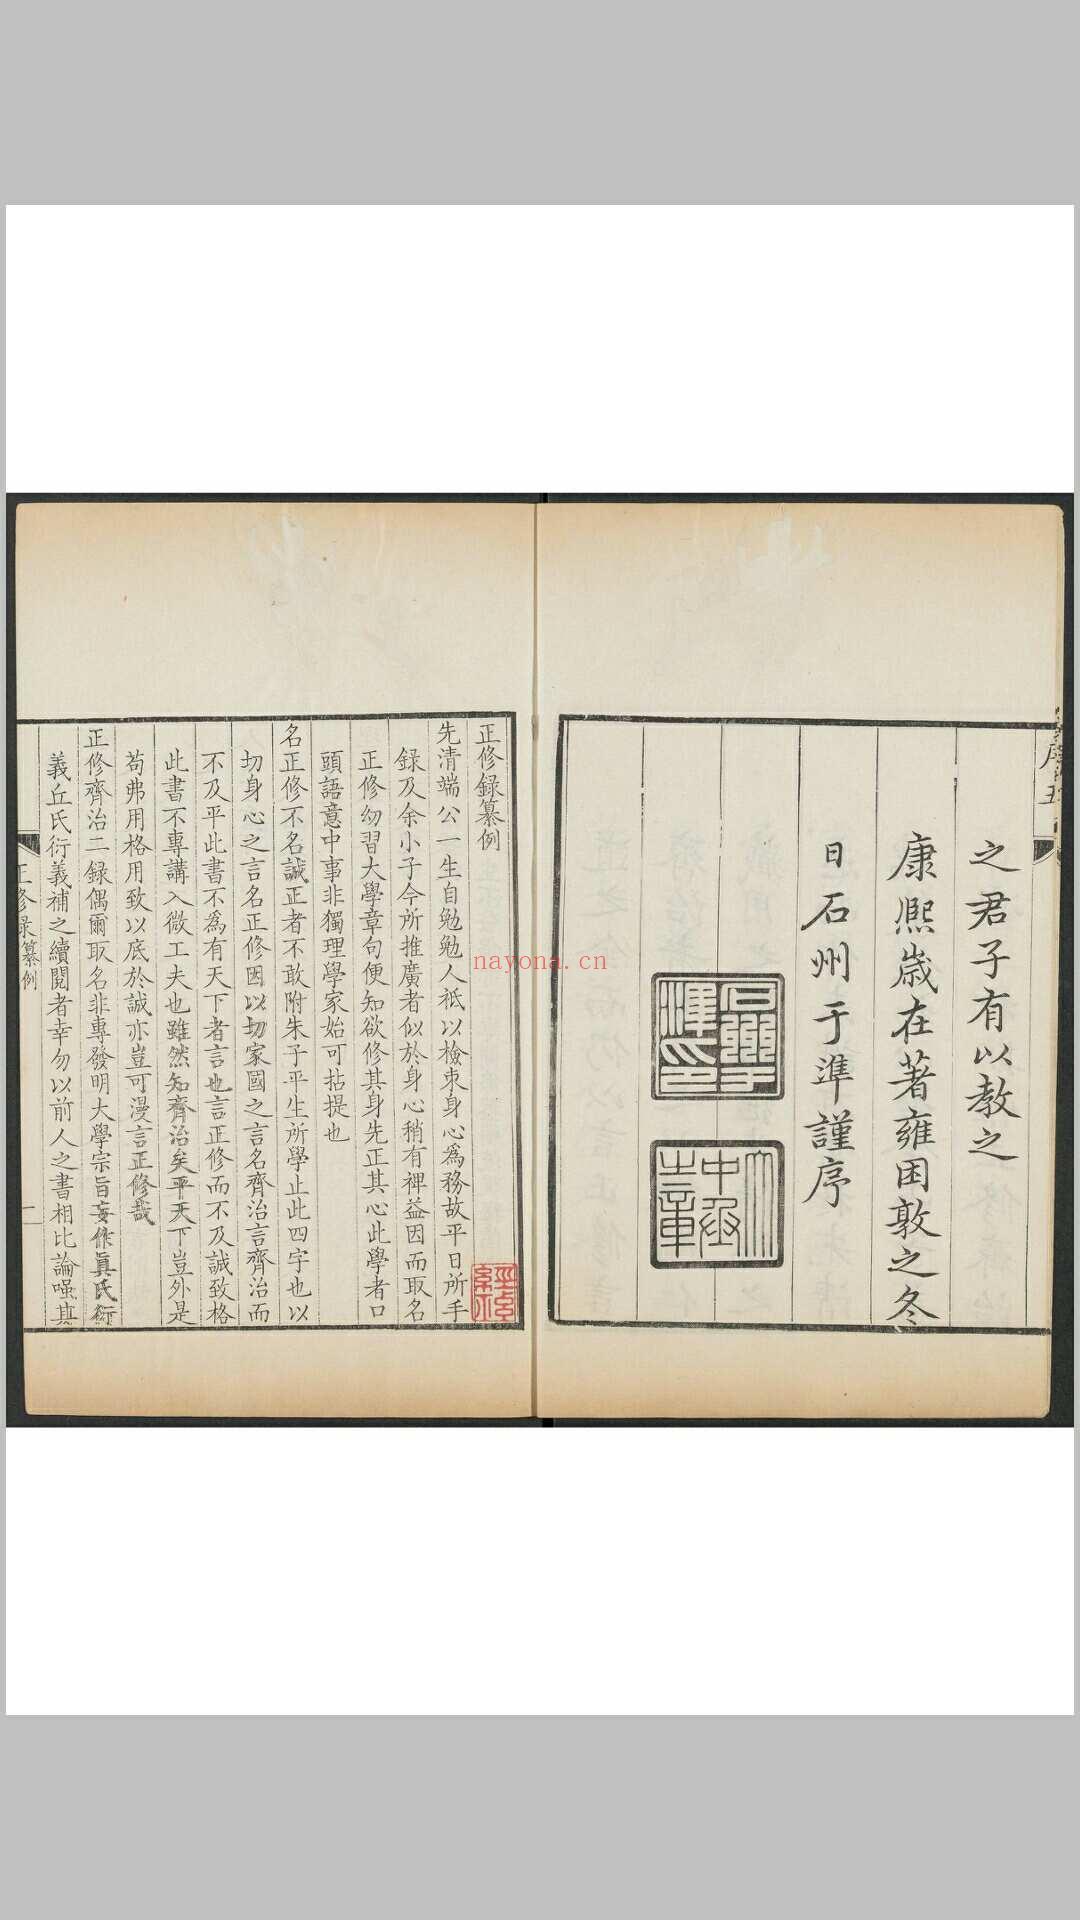 之君子有以教之
康熙歲在著雍困敦之冬
日石州于準謹序
石州于準印
中丞之章
nayona.cn
正修録纂例
先清端公一生自勉勉人祇以檢束身心爲務故平日所手
録及余小子今所推廣者似於身心稍有裨益因而取名
正修幼習大學章句便知欲修其身先正其心此學者口
頭語意中事非獨理學家始可拈提也
名正修不名誠正者不敢附朱子平生所學止此四字也以
切身心之言名正修因以切家國之言名齊治言齊治而
不及平此書不爲有天下者言也言正修而不及誠致格
此書不專講入微工夫也雖然知齊治矣平天下豈外是
苟弗用格用致以底於誠亦豈可漫言正修哉
正修齊治二録偶爾取名非專發明大學宗旨妄作眞氏衍
義丘氏衍義補之續閱者幸勿以前人之書相比論嗤其
正修録纂例
一